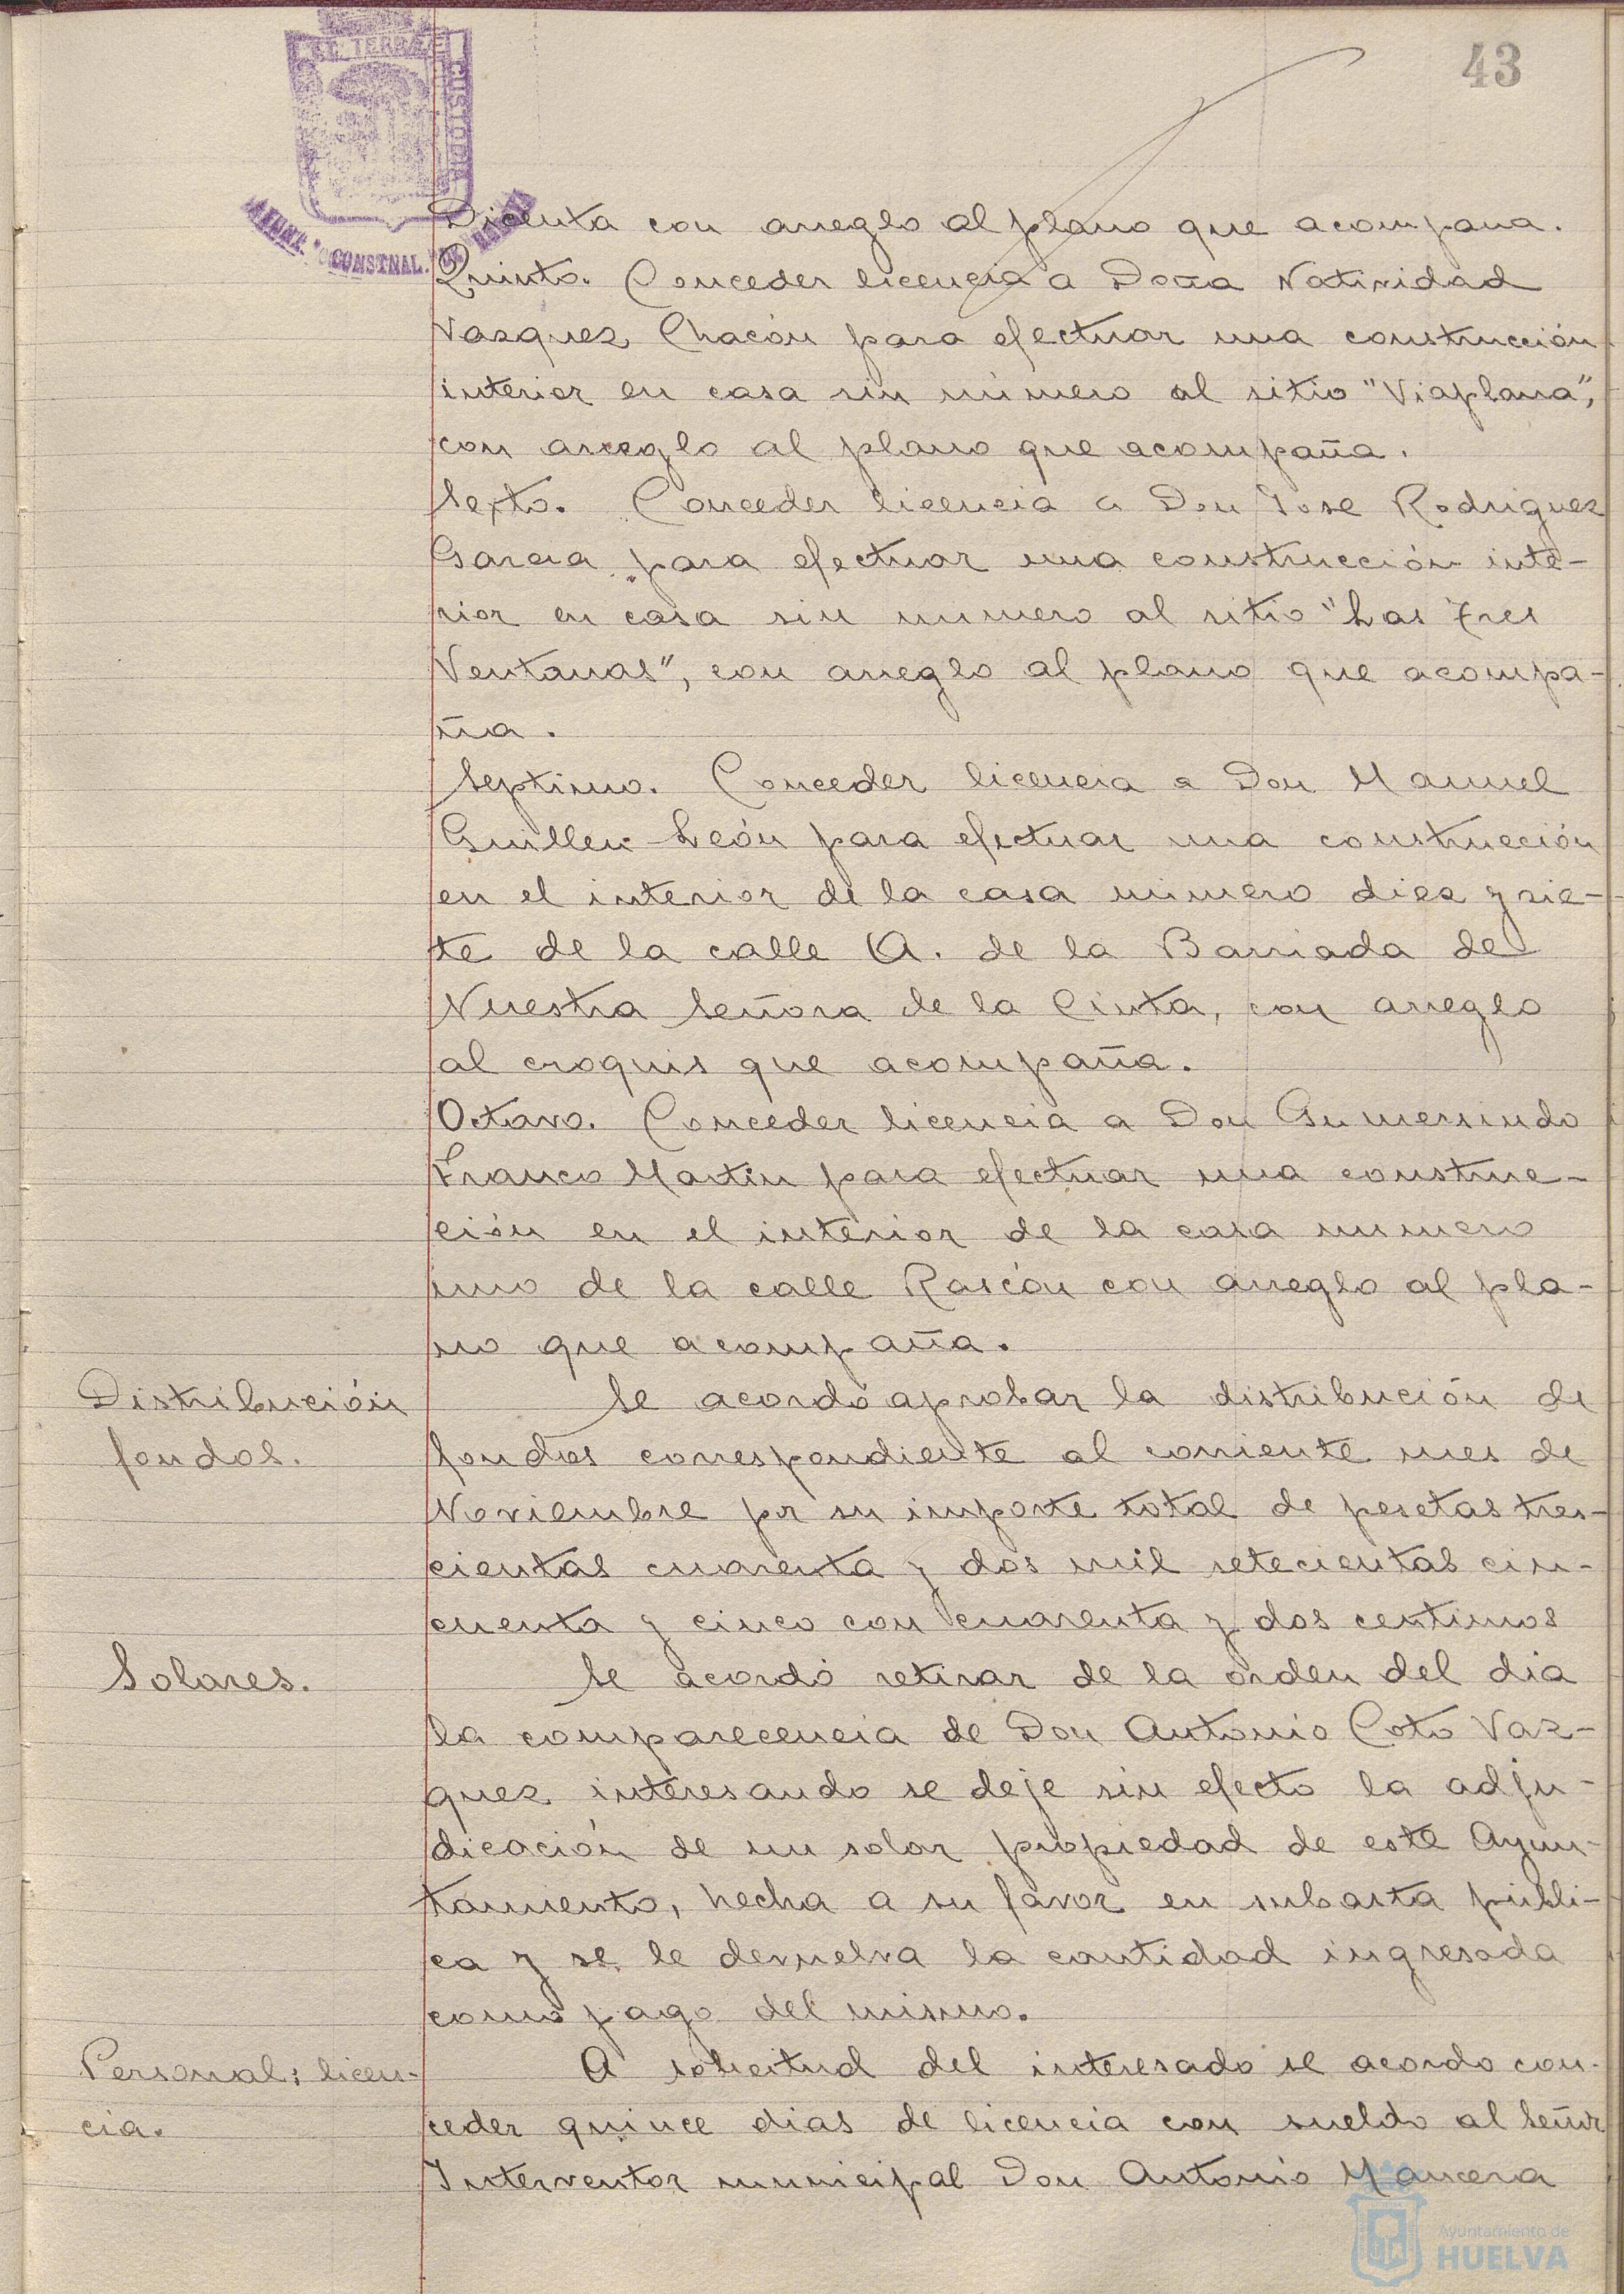 43
Dicenta con arreglo al plano que acompana.
Quinto. Conceder licencia a Doña Natividad
Vazquez Chacón para efectuar una construcción
interior en casa sin número al sitio "Viaplana",
con arreglo al plano que acompaña.
Sexto. Conceder licencia a Don Jose Rodriguez
Garcia para efectuar una construcción inte-
rior en casa sin numero al sitio "Las Tres
Ventanas", con arreglo al plano que acompa-
ña.
Septimo. Conceder licencia a Don Manuel
Guillen León para efectuar una construcción
en el interior de la casa numero diez y sie-
te de la calle A. de la Barriada de
Nuestra Señora de la Cinta, con arreglo
al croquis que acompaña.
Octavo. Conceder licencia a Don Gumersindo
Franco Martin para efectuar una construc-
ción en el interior de la casa numero
uno de la calle Rascón con arreglo al pla-
no que acompaña.
Distribución
fondos.
Se acordó aprobar la distribución de
fondos correspondiente al corriente mes de
Noviembre pr su importe total de pesetas tres-
cientas cuarenta y dos mil setecientas cin-
cuenta y cinco con cuarenta y dos centimos
Solares.
Se acordó retirar de la orden del dia
la comparecencia de Don Antonio Coto Vaz-
quez interesando se deje sin efecto la adju-
dicación de un solar propiedad de este Ayun-
tamiento, hecha a su favor en subasta públi-
ca y se le devuelva la cantidad ingresada
como pago del mismo.
Personal: licen-
cia.
A solicitud del interesado se acordo con-
ceder quince dias de licencia con sueldo al Señor
Interventor municipal Don Antonio Mancera
CUSTODIA
CONSTNAL. DE
Ayuntamiento de
HUELVA